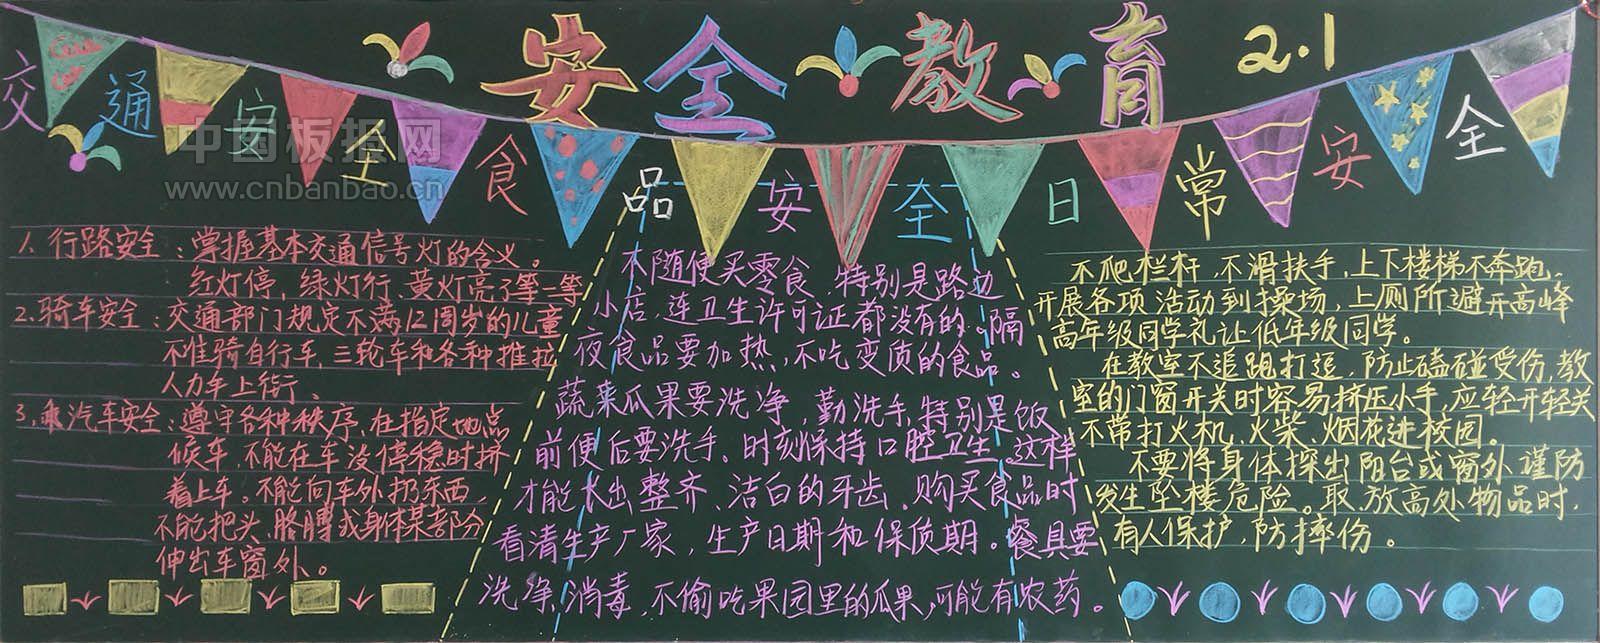 安全教育 2.1
交通安全
食品安全
日常安全
中国板报网
www.cnbanbao.cn
1、行路安全：掌握基本交通信号灯的含义。
红灯停，绿灯行、黄灯亮了等一等
2、骑车安全：交通部门规定不满12周岁的儿童
不准骑自行车、三轮车和各种推拉
人力车上街、
3、乘汽车安全：遵守各种秩序、在指定地点
候车，不能在车没停稳时挤
着上车。不能向车外扔东西，
不能把头、胳膊或身体某部分
伸出车窗外。
不随便买零食，特别是路边
小店，连卫生许可证都没有的。隔
夜食品要加热，不吃变质的食品。
蔬菜瓜果要洗净，勤洗手，特别是饭
前便后要洗手、时刻保持口腔卫生。这样
才能长出整齐、洁白的牙齿、购买食品时
看清生产厂家，生产日期和保质期。餐具要
洗净、消毒，不偷吃果园里的瓜果，可能有农药。
不爬栏杆，不滑扶手，上下楼梯不奔跑、
开展各项活动到操场，上厕所避开高峰
高年级同学礼让低年级同学。
在教室不追跑打逗，防止磕碰受伤，教
室的门窗开关时容易挤压小手，应轻开轻关
不带打火机、火柴、烟花进校园。
不要将身体探出阳台或窗外谨防
发生坠楼危险。取、放高处物品时，
有人保护，防摔伤。